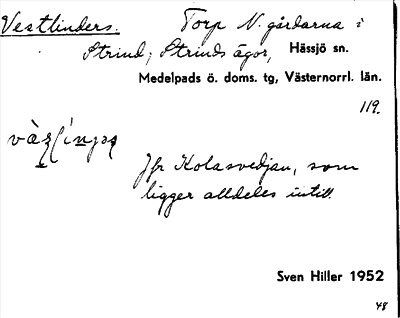 Vestlinders. Torp N. gårdarna i
Strind; Strinds ägor, Hässjö sn.
Medelpads ö. doms. tg, Västernorrl. län.
119.
Jfr Kolasvedjan, som
ligger alldeles intill.
Sven Hiller 1952
48